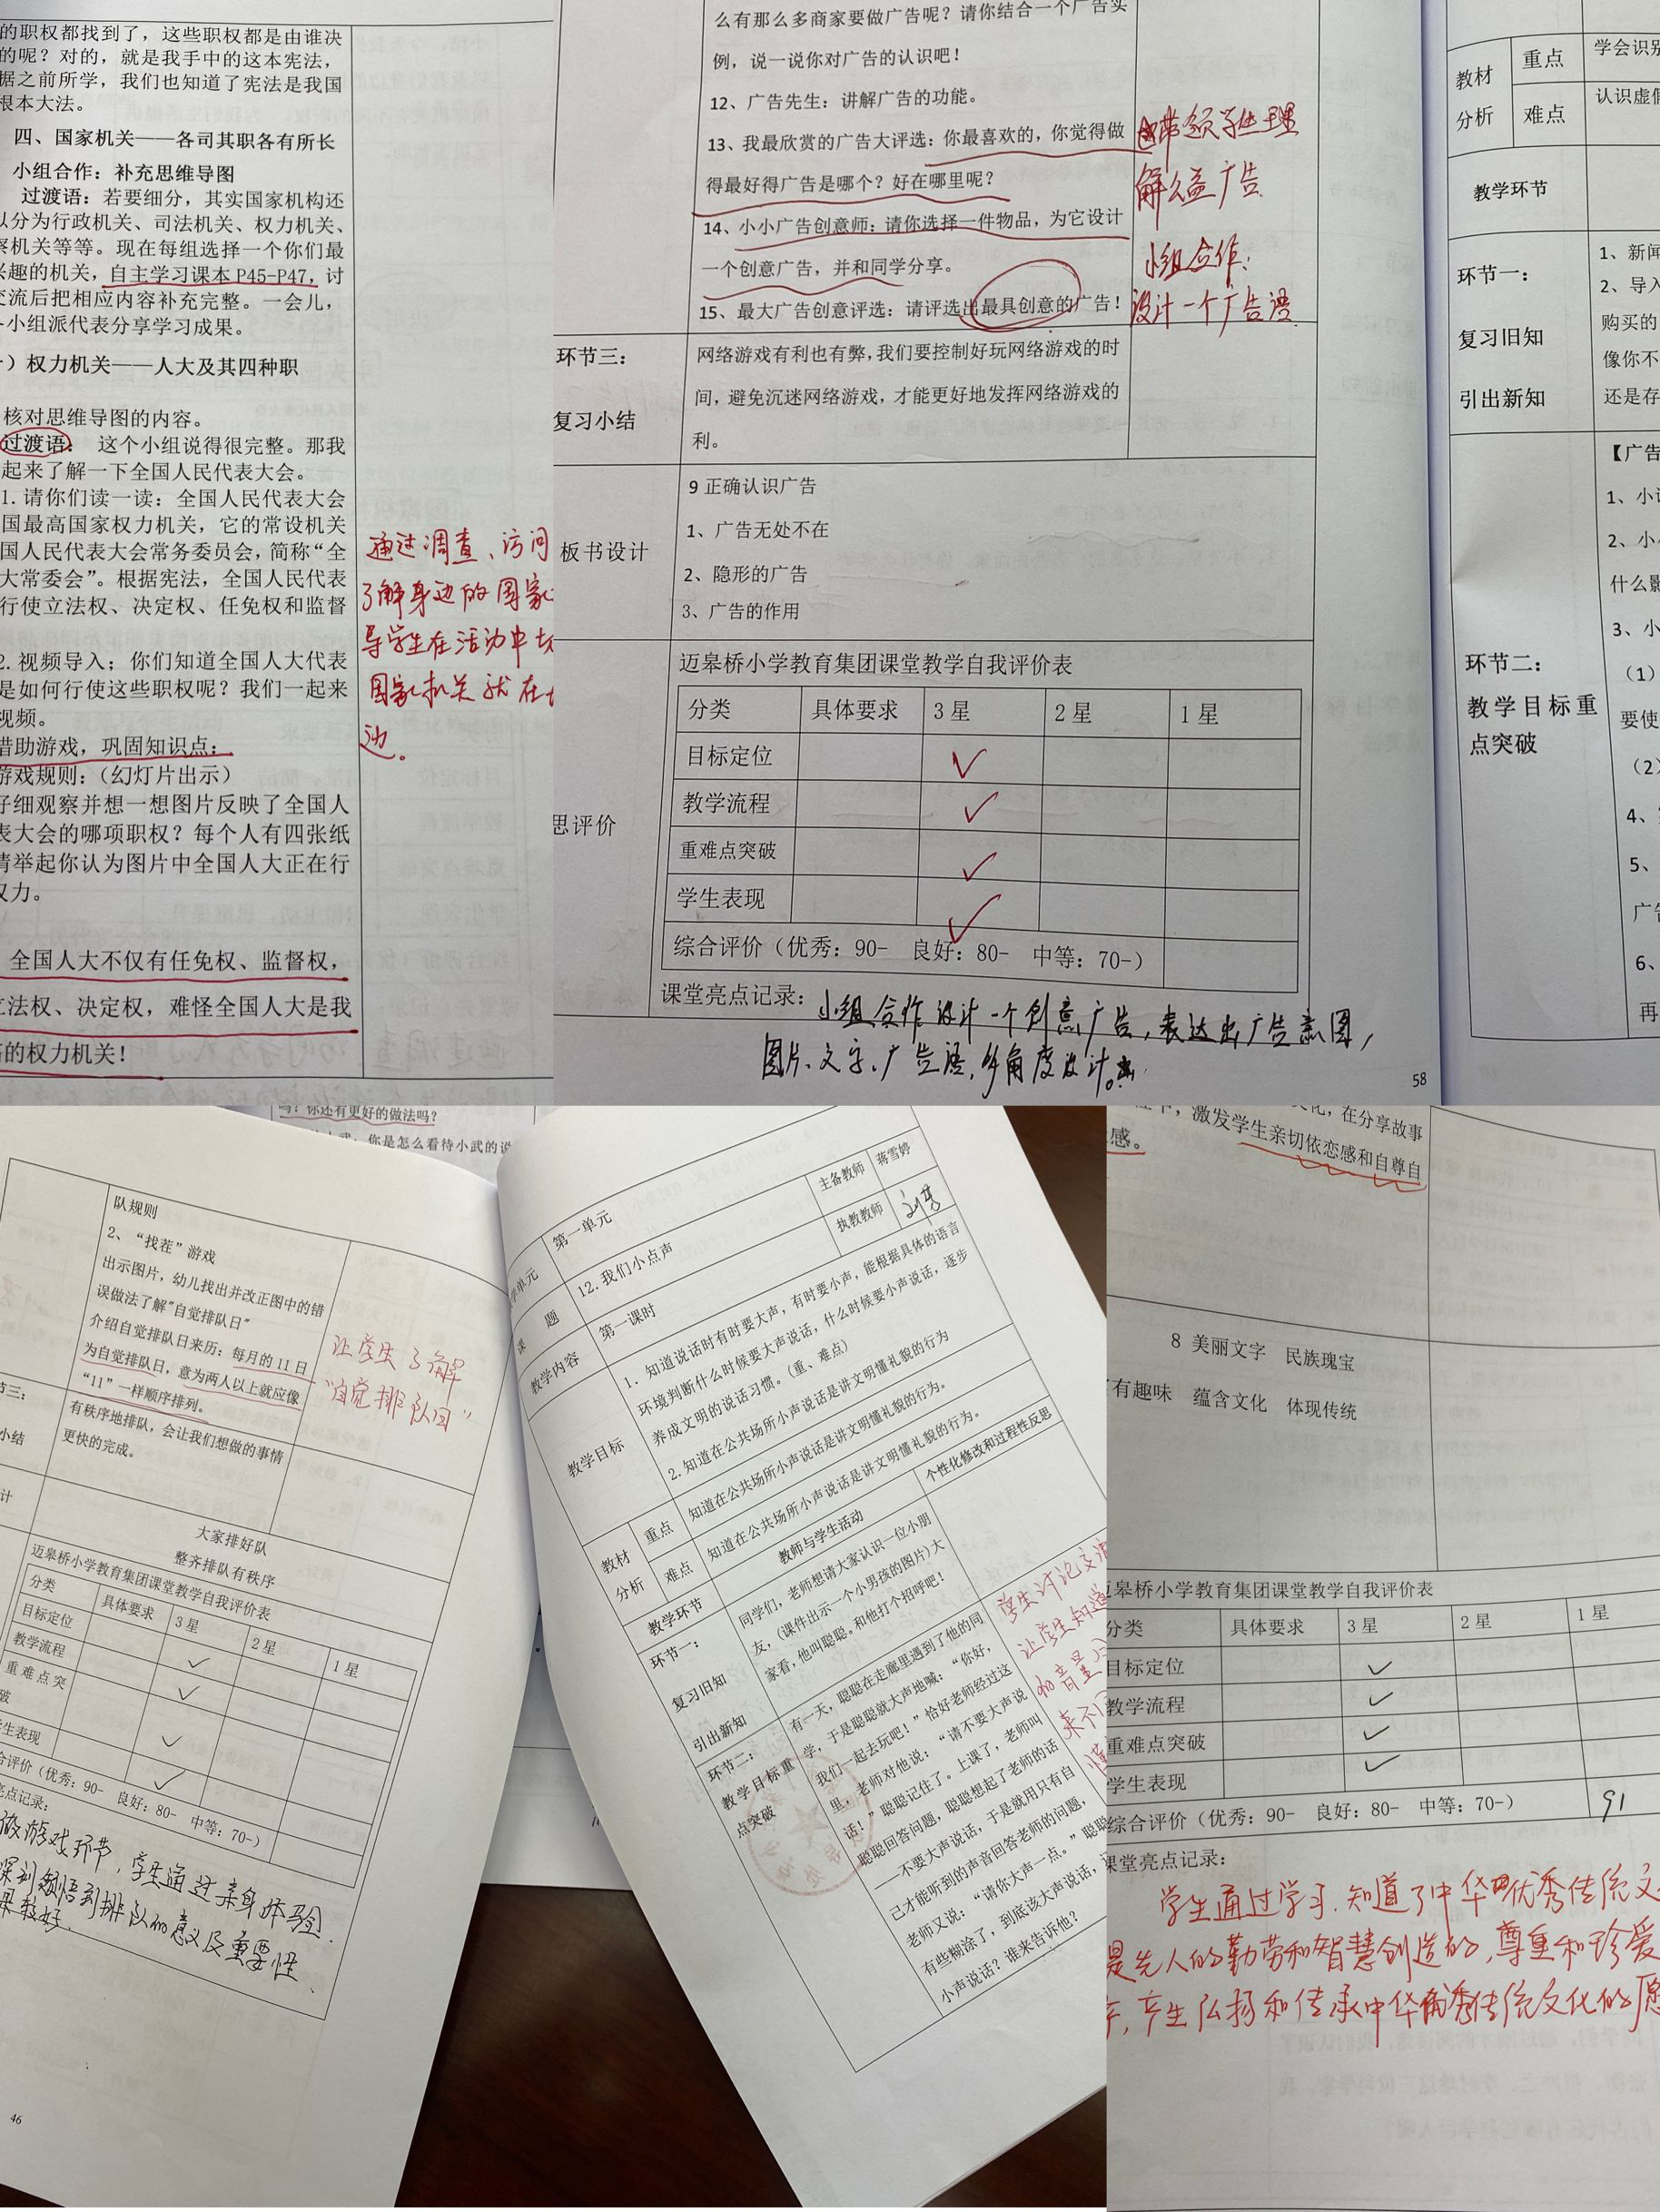 的职权都找到了，这些职权都是由谁决
的呢？对的，就是我手中的这本宪法，
据之前所学，我们也知道了宪法是我国
根本大法。
四、国家机关——各司其职各有所长
小组合作：补充思维导图
过渡语：若要细分，其实国家机构还
以分为行政机关、司法机关、权力机关、
察机关等等。现在每组选择一个你们最
兴趣的机关，自主学习课本P45-P47，讨
交流后把相应内容补充完整。一会儿，
小组派代表分享学习成果。
）权力机关——人大及其四种职
核对思维导图的内容。
过渡语： 这个小组说得很完整。那我
起来了解一下全国人民代表大会。
1.请你们读一读：全国人民代表大会
国最高国家权力机关，它的常设机关
国人民代表大会常务委员会，简称“全
大常委会”。根据宪法，全国人民代表
行使立法权、决定权、任免权和监督
2.视频导入；你们知道全国人大代表
是如何行使这些职权呢？我们一起来
视频。
借助游戏，巩固知识点：
游戏规则：（幻灯片出示）
仔细观察并想一想图片反映了全国人
表大会的哪项职权？每个人有四张纸
请举起你认为图片中全国人大正在行
权力。
全国人大不仅有任免权、监督权，
立法权、决定权，难怪全国人大是我
高的权力机关！
通过调查、访问
了解身边的国家
导学生在活动中
国家机关就在
边。
么有那么多商家要做广告呢？请你结合一个广告实
例，说一说你对广告的认识吧！
12、广告先生：讲解广告的功能。
13、我最欣赏的广告大评选：你最喜欢的，你觉得做
得最好得广告是哪个？好在哪里呢？
14、小小广告创意师：请你选择一件物品，为它设计
一个创意广告，并和同学分享。
15、最大广告创意评选：请评选出最具创意的广告！
带领学生理
解公益广告
小组合作：
设计一个广告语
环节三：
复习小结
网络游戏有利也有弊，我们要控制好玩网络游戏的时
间，避免沉迷网络游戏，才能更好地发挥网络游戏的
利。
板书设计
9 正确认识广告
1、广告无处不在
2、隐形的广告
3、广告的作用
思评价
迈皋桥小学教育集团课堂教学自我评价表
分类 具体要求 3星 2星 1星
目标定位
教学流程
重难点突破
学生表现
综合评价（优秀：90- 良好：80- 中等：70-）
课堂亮点记录：小组合作设计一个创意广告，表达出广告意图，
图片、文字、广告语，多角度设计。
58
教材
分析
重点
学会识别
难点
认识虚假
教学环节
环节一：
复习旧知
引出新知
1、新闻
2、导入
购买的
像你不
还是存
环节二：
教学目标重
点突破
【广告
1、小
2、小
什么影
3、小
（1）
要使
（2）
4、
5、
广告
6、
再
吗？你还有更好的做法吗？
你是怎么看待小武的说
队规则
2、“找茬”游戏
出示图片，幼儿找出并改正图中的错
误做法了解"自觉排队日"
介绍自觉排队日来历：每月的11日
为自觉排队日，意为两人以上就应像
“11”一样顺序排列。
有秩序地排队，会让我们想做的事情
更快的完成。
让学生了解
“自觉排队日”
节三：
小结
计
大家排好队
整齐排队有秩序
迈皋桥小学教育集团课堂教学自我评价表
分类 具体要求 3星 2星 1星
目标定位
教学流程
重难点突
破
生表现
合评价（优秀：90- 良好：80- 中等：70-）
亮点记录：
做游戏环节，学生通过亲身体验
深刻领悟到排队的意义及重要性
果较好
46
学单元 第一单元 主备教师 蒋雪婷
课 题 12.我们小点声 执教教师
教学内容 第一课时
教学目标
1. 知道说话时有时要大声，有时要小声，能根据具体的语言
环境判断什么时候要大声说话，什么时候要小声说话，逐步
养成文明的说话习惯。（重、难点）
2.知道在公共场所小声说话是讲文明懂礼貌的行为
教材
分析
重点 知道在公共场所小声说话是讲文明懂礼貌的行为。
难点 知道在公共场所小声说话是讲文明懂礼貌的行为。
教学环节 教师与学生活动 个性化修改和过程性反思
环节一：
复习旧知
引出新知
同学们，老师想请大家认识一位小朋
友，（课件出示一个小男孩的图片）大
家看，他叫聪聪。和他打个招呼吧！
环节二：
教学目标重
点突破
有一天，聪聪在走廊里遇到了他的同
学，于是聪聪就大声地喊：“你好，
我们一起去玩吧！”恰好老师经过这
里，老师对他说：“请不要大声说
话！”聪聪记住了。上课了，老师叫
聪聪回答问题，聪聪想起了老师的话
——不要大声说话，于是就用只有自
己才能听到的声音回答老师的问题，
老师又说：“请你大声一点。”聪聪
有些糊涂了，到底该大声说话，
小声说话？谁来告诉他？
学生讨论交流
让学生知道
的音量
化，在分享故事
中，激发学生亲切依恋感和自尊自
感。
8 美丽文字 民族瑰宝
有趣味 蕴含文化 体现传统
迈皋桥小学教育集团课堂教学自我评价表
分类 具体要求 3星 2星 1星
目标定位
教学流程
重难点突破
学生表现
综合评价（优秀：90- 良好：80- 中等：70-） 91
课堂亮点记录：
学生通过学习，知道了中华优秀传统文
是先人的勤劳和智慧创造的，尊重和珍爱
产生弘扬和传承中华优秀传统文化的愿